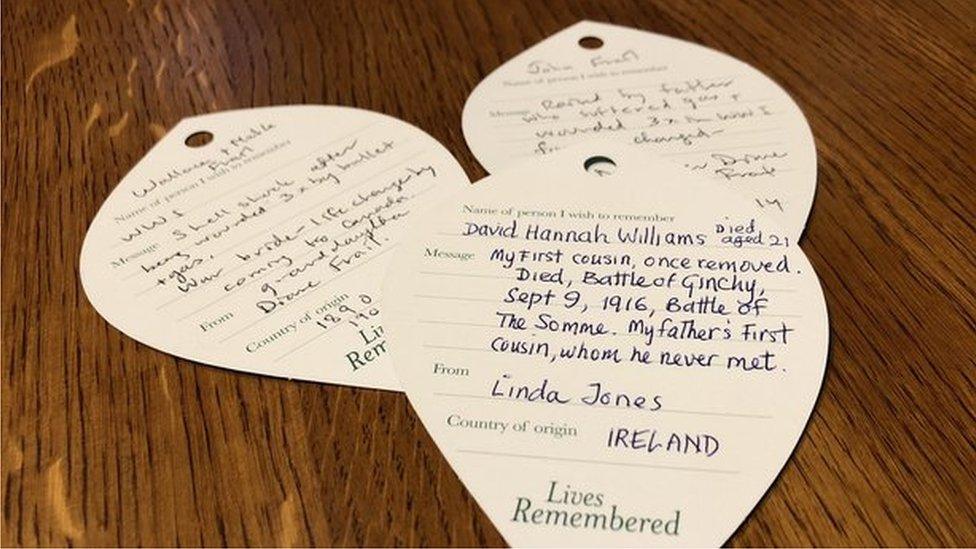 Wallace + Mable
Name of person I wish to remember
WWI
Message
Shell shock after
being wounded 3x by bullet
+ gas,
War bride - life change by
coming to Canada.
g-andaughter
From
Diane
Frait.
Country of origin
189
190
Li
Rem
John
Name of person I wish to remember
Message
Raised by father
who suffered gas +
wounded 3x in WWI
changed -
~ Diane
Frait
14
Name of person I wish to remember
David Hannah Williams Died aged 21
Message
My first cousin, once removed.
Died, Battle of Ginchy,
Sept 9, 1916, Battle of
The Somme. My father's First
cousin, whom he never met.
From
Linda Jones
Country of origin
IRELAND
Lives
Remembered